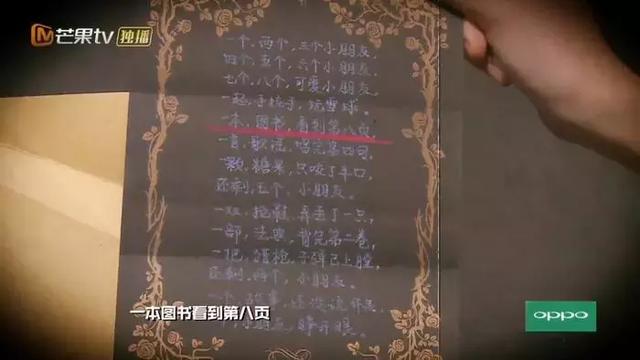 芒果tv 独播
一个,两个,三个小朋友,
四个,五个,六个小朋友,
七个,八个,可爱小朋友,
一起,手拉手,玩雪球。
一本,图书,看到第八页,
一首,歌谣,唱完第四句,
一颗,糖果,只咬了半口,
还剩,五个,小朋友。
一双,拖鞋,弄丢了一只,
一部,法典,背完第二卷,
一把,猎枪,子弹已上膛,
还剩,两个,小朋友。
一个,故事,还没说
一个,小朋友,睁开眼
一本图书看到第八页
oppo